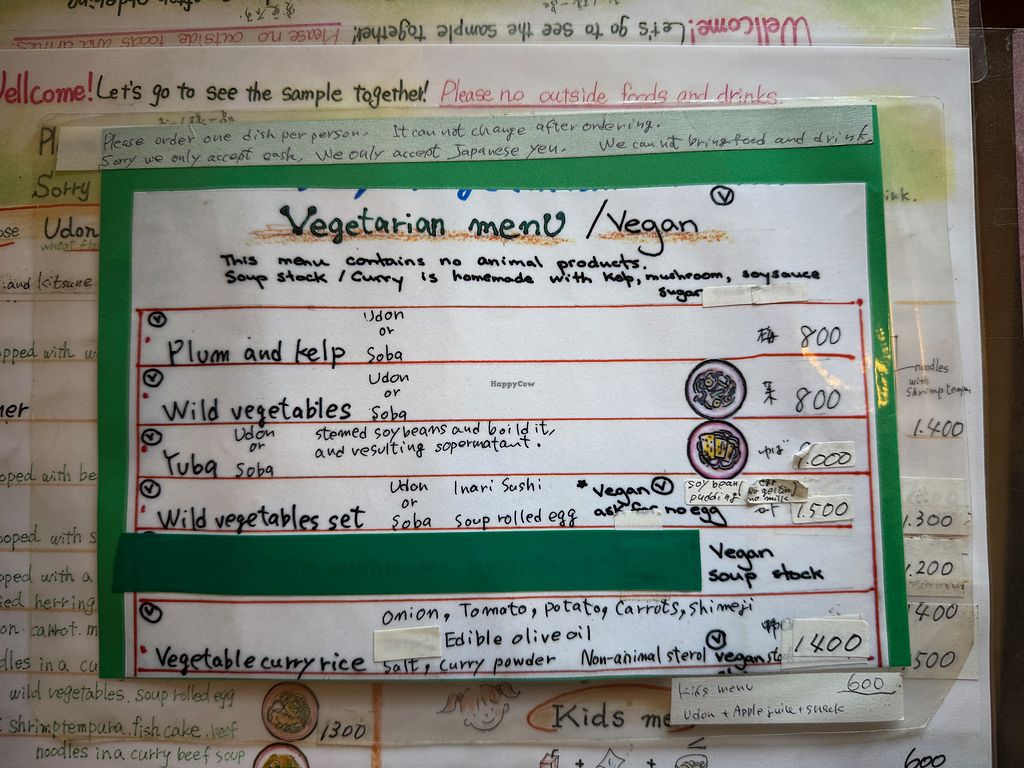 Welcome! Let's go to see the sample together! Please no outside foods and drinks
Wellcome! Let's go to see the sample together! Please no outside foods and drinks.
Please order one dish per person. It can not change after ordering.
Sorry we only accept cash. We only accept Japanese yen. We can not bring food and drink.
Sorry
Udon
Vegetarian menu / Vegan
This menu contains no animal products.
Soup stock / Curry is homemade with kelp, mushroom, soysauce
sugar
Udon
or
Plum and kelp Soba 梅 800
Udon
or
Wild vegetables Soba 菜 800
Udon
or
stemed soybeans and boild it,
and resulting sopernatant.
Yuba Soba 1.000
Udon Inari Sushi * vegan soy bean pudding! no gelatin no milk
or
Wild vegetables set Soba Soup rolled egg ask for no egg 1.500
Vegan
soup stock
onion, Tomato, potato, Carrots, shimeji
Edible olive oil
Vegetable curry rice Salt, Curry powder Non-animal sterol vegan 1400
kids menu 600
Udon + Apple juice + snack
and kitsune
noodles
with
shrimp tempura
1.400
1.300
1.200
1400
1500
ied herring
on. carrot. m
dles in a cu
wild vegetables. soup rolled egg
shrimp tempura. fish cake. beef 1300
noodles in a curry beef soup
Kids me
600
HappyCow